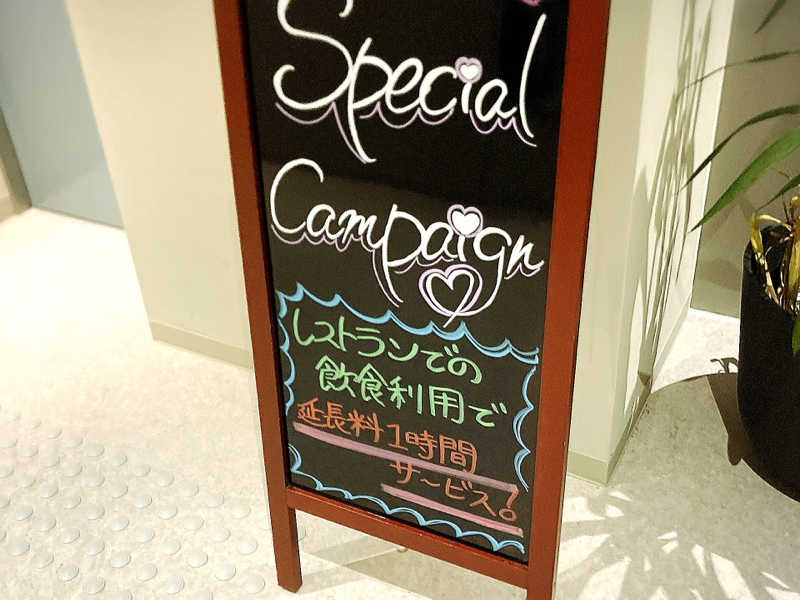 Special
Campaign
レストランでの
飲食利用で
延長料1時間
サービス!